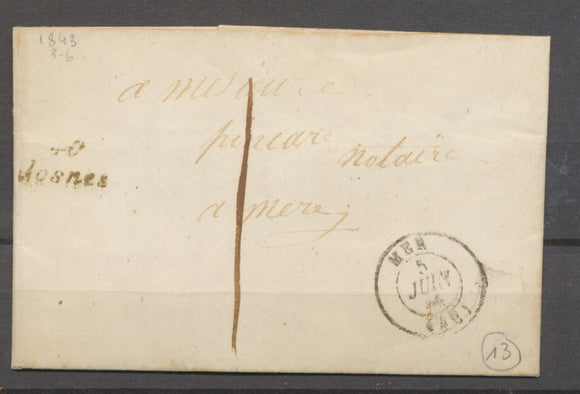 1843
3-6.
a mesieure
poncare
notaire
a mere
40
Josnes
1
MER
5
JUIN
(40)
13